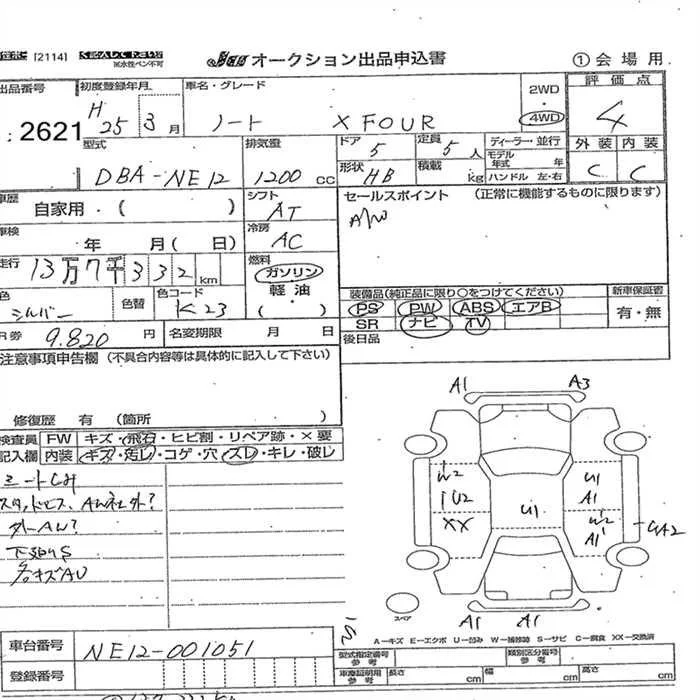 [2114]
※水性ペン不可
オークション出品申込書
①会場用
出品番号
初度登録年月
車名・グレード
2WD
評価点
2621
H 25 3月
ノート X FOUR
4WD
4
型式
排気量
ドア
定員
ディーラー・並行
外装 内装
DBA-NE12
1200 cc
5
5人
モデル年式 年
C C
形状
積載
HB
kg
ハンドル 左・右
車歴
自家用・( )
シフト
AT
セールスポイント (正常に機能するものに限ります)
A/W
車検
年 月( 日)
冷房
AC
走行
13万7千332km
燃料
ガソリン
軽油
・( )
色
シルバー
色替
色コード
K23
装備品(純正品に限り○をつけてください)
新車保証書
PS PW ABS エアB
有・無
SR ナビ TV
R券 9.820円
名変期限 月 日
後日品
注意事項申告欄 (不具合内容等は具体的に記入して下さい)
修復歴 有 (箇所 )
検査員
記入欄
FW キズ・飛石・ヒビ割・リペア跡・×要
内装 キズ・汚レ・コゲ・穴・スレ・キレ・破レ
シートCH
外AW?
下回りS
各キズAU
A1
A3
W2
U2
XX
U1
U1
A1
W2
A1
UA2
スペア
A1
A1
A-キズ E-エクボ U-凹み W-補修跡 S-サビ C-腐食 XX-交換済
車台番号
NE12-001051
型式指定番号
参考
類別区分番号
参考
登録番号
車庫証明用
参考
長さ cm
幅 cm
高さ cm